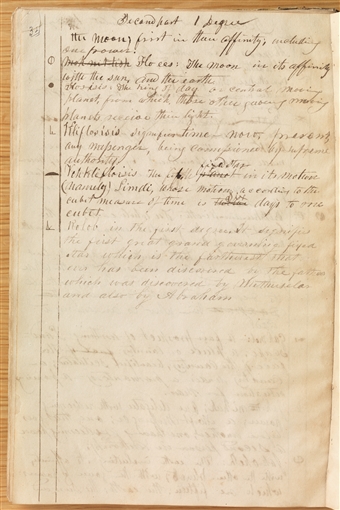 35
Second part 1 Degree
The Moon, first in their affinity; including
one power.
Flo ees: The moon in its affinity
with the sun, and the earth
Flos-isis: The king of day or central moving
planet, from which the other governing moving
planets receive their light.
Kliflosisis signifies time now present
any messenger, being commissioned by supreme
authority
Veh-Kliflosisis: The eighth in its motion
(namely) Limdi, whose motion, according to the
cubit measure of time is days to one
cubit
Kolob in the first degree signifies
the first great grand governing fixed
star which is the fartherest that
ever has been discovered by the fathers
which was discovered by Methusela
and also by Abraham